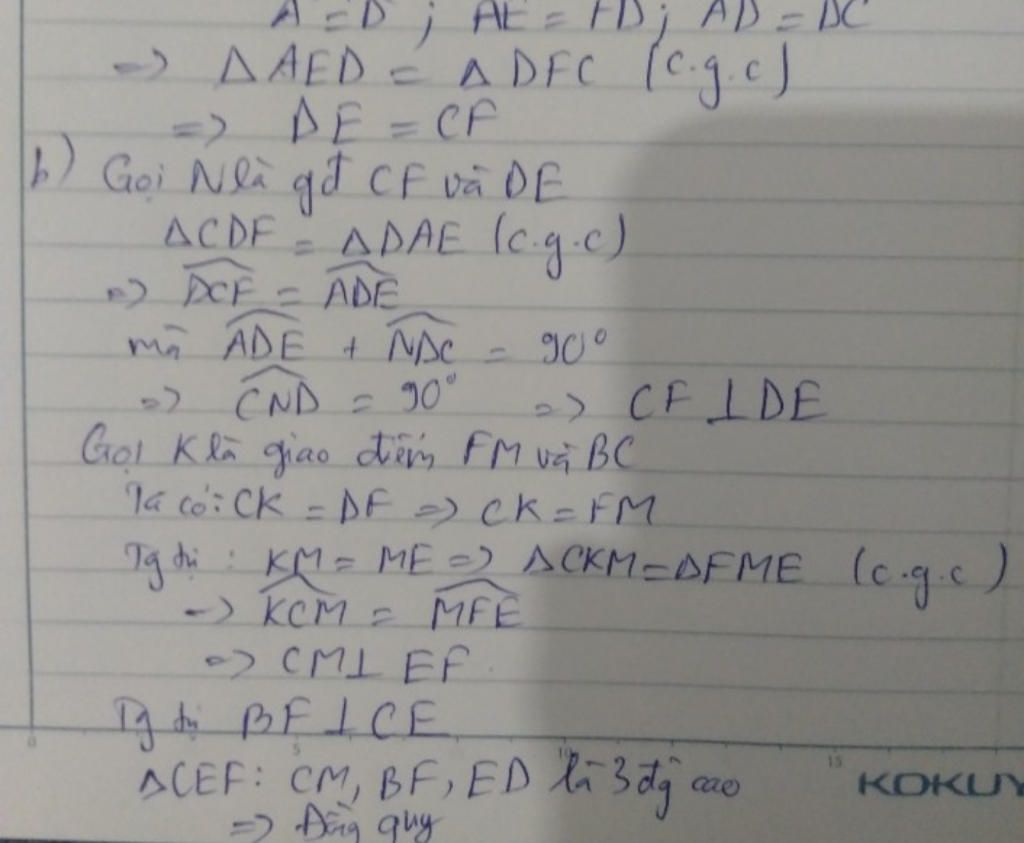 A = D ; AE = FD ; AD = DC
=> ΔAED = ΔDFC (c.g.c)
=> DE = CF
b) Gọi N là gđ CF và DE
ΔCDF = ΔDAE (c.g.c)
=> DCF = ADE
mà ADE + NDC = 90°
=> CND = 90° => CF ⊥ DE
Gọi K là giao điểm FM và BC
Ta có: CK = DF => CK = FM
Tg tự : KM = ME => ΔCKM = ΔFME (c.g.c)
=> KCM = MFE
=> CM ⊥ EF.
Tg tự BF ⊥ CE
0 5 10 15
ΔCEF: CM, BF, ED là 3 đg cao
KOKUY
=> Đồng quy